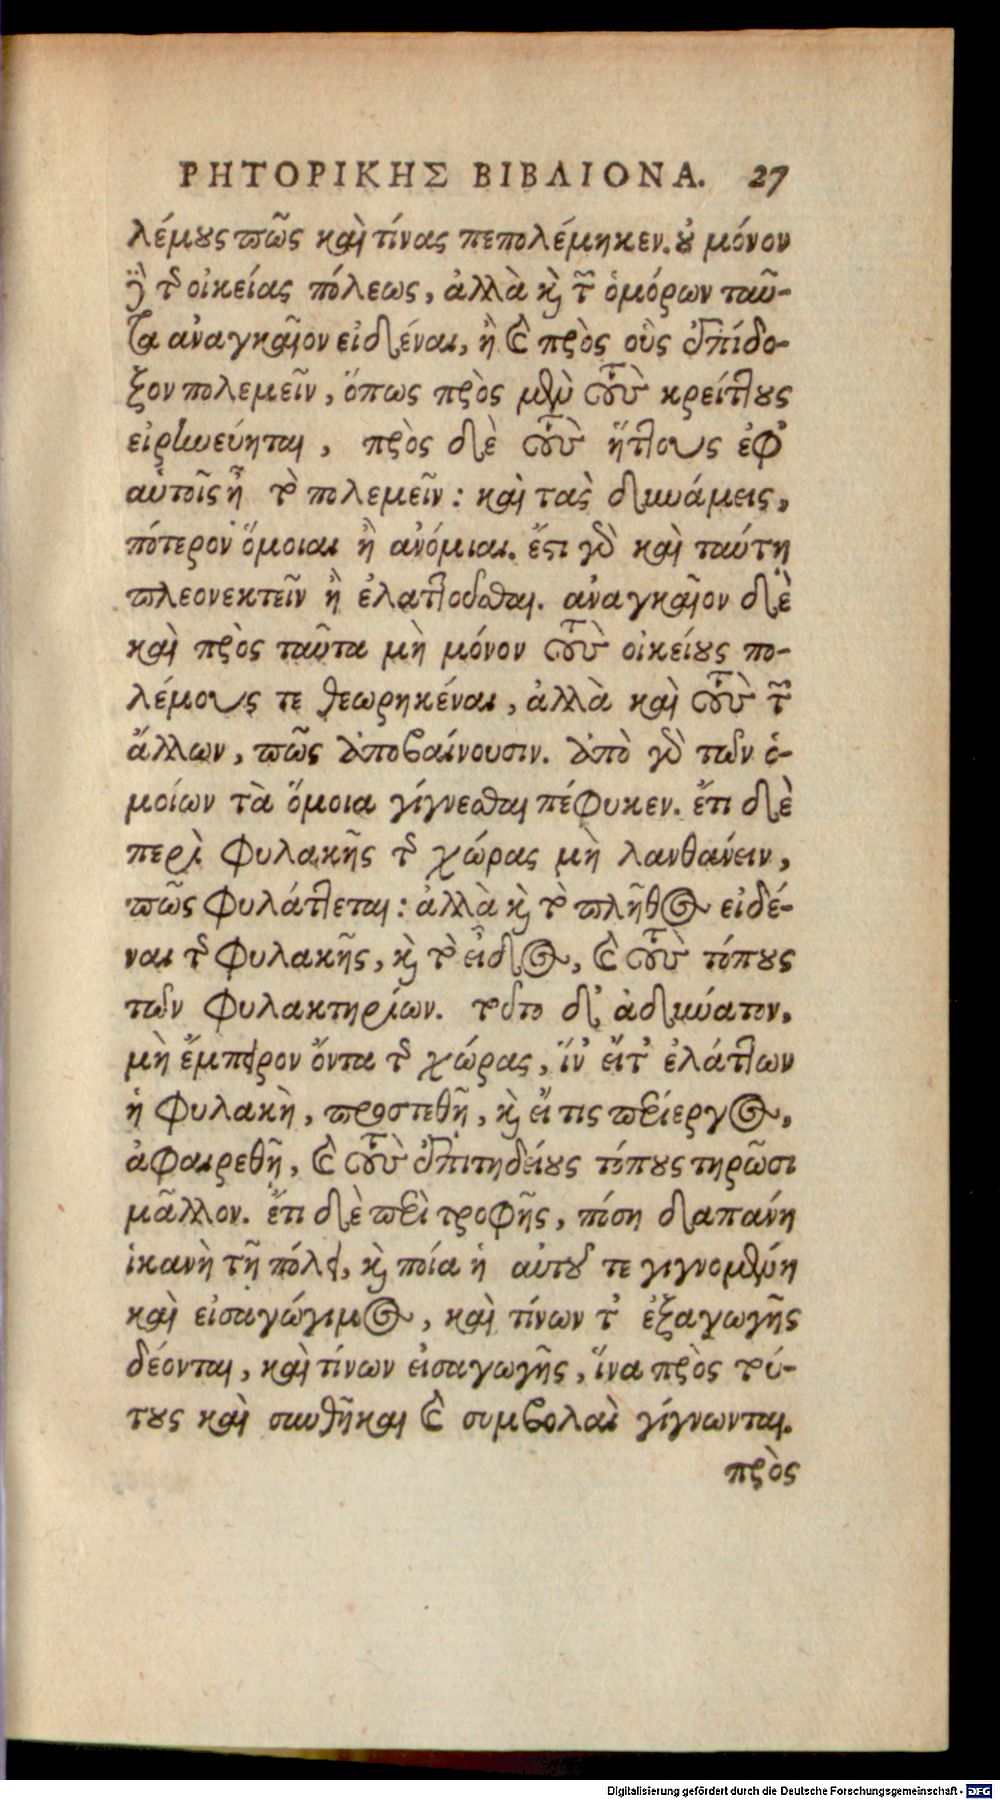 ΡΗΤΟΡΙΚΗΣ ΒΙΒΛΙΟΝ Α. 27
λέμους πῶς καὶ τίνας πεπολέμηκεν. οὐ μόνον
δὲ τῆς οἰκείας πόλεως, ἀλλὰ καὶ τῶν ὁμόρων ταῦ-
τα ἀναγκαῖον εἰδέναι, ἢ καὶ πρὸς οὓς ἐπίδο-
ξον πολεμεῖν, ὅπως πρὸς μὲν τοὺς κρείττους
εἰρηνεύηται, πρὸς δὲ τοὺς ἥττους ἐφ'
αὑτοῖς ᾖ τὸ πολεμεῖν: καὶ τὰς δυνάμεις,
πότερον ὅμοιαι ἢ ἀνόμιαι. ἔστι γὰρ καὶ ταύτη
πλεονεκτεῖν ἢ ἐλαττοῦσθαι. ἀναγκαῖον δὲ
καὶ πρὸς ταῦτα μὴ μόνον τοὺς οἰκείους πο-
λέμους τε θεωρηκέναι, ἀλλὰ καὶ τοὺς τῶν
ἄλλων, πῶς ἀποβαίνουσιν. ἀπὸ γὰρ τῶν ὁ-
μοίων τὰ ὅμοια γίγνεσθαι πέφυκεν. ἔτι δὲ
περὶ φυλακῆς τῆς χώρας μὴ λανθάνειν,
πῶς φυλάττεται: ἀλλὰ καὶ τὸ πλῆθος εἰδέ-
ναι τῆς φυλακῆς, καὶ τὸ εἶδος, καὶ τοὺς τόπους
τῶν φυλακτηρίων. τοῦτο δ' ἀδύνατον,
μὴ ἔμπειρον ὄντα τῆς χώρας, ἵν' εἴτ' ἐλάττων
ἡ φυλακὴ, προστεθῆ, καὶ εἴ τις περίεργος,
ἀφαιρεθῆ, καὶ τοὺς ἐπιτηδείους τόπους τηρῶσι
μᾶλλον. ἔτι δὲ περὶ τροφῆς, πόση δαπάνη
ἱκανὴ τῆ πόλει, καὶ ποία ἡ αὐτοῦ τε γιγνομένη
καὶ εἰσαγώγιμος, καὶ τίνων τ' ἐξαγωγῆς
δέονται, καὶ τίνων εἰσαγωγῆς, ἵνα πρὸς τού-
τους καὶ συνθῆκαι καὶ συμβολαὶ γίγνωνται.
πρὸς
Digitalisierung gefördert durch die Deutsche Forschungsgemeinschaft - DFG